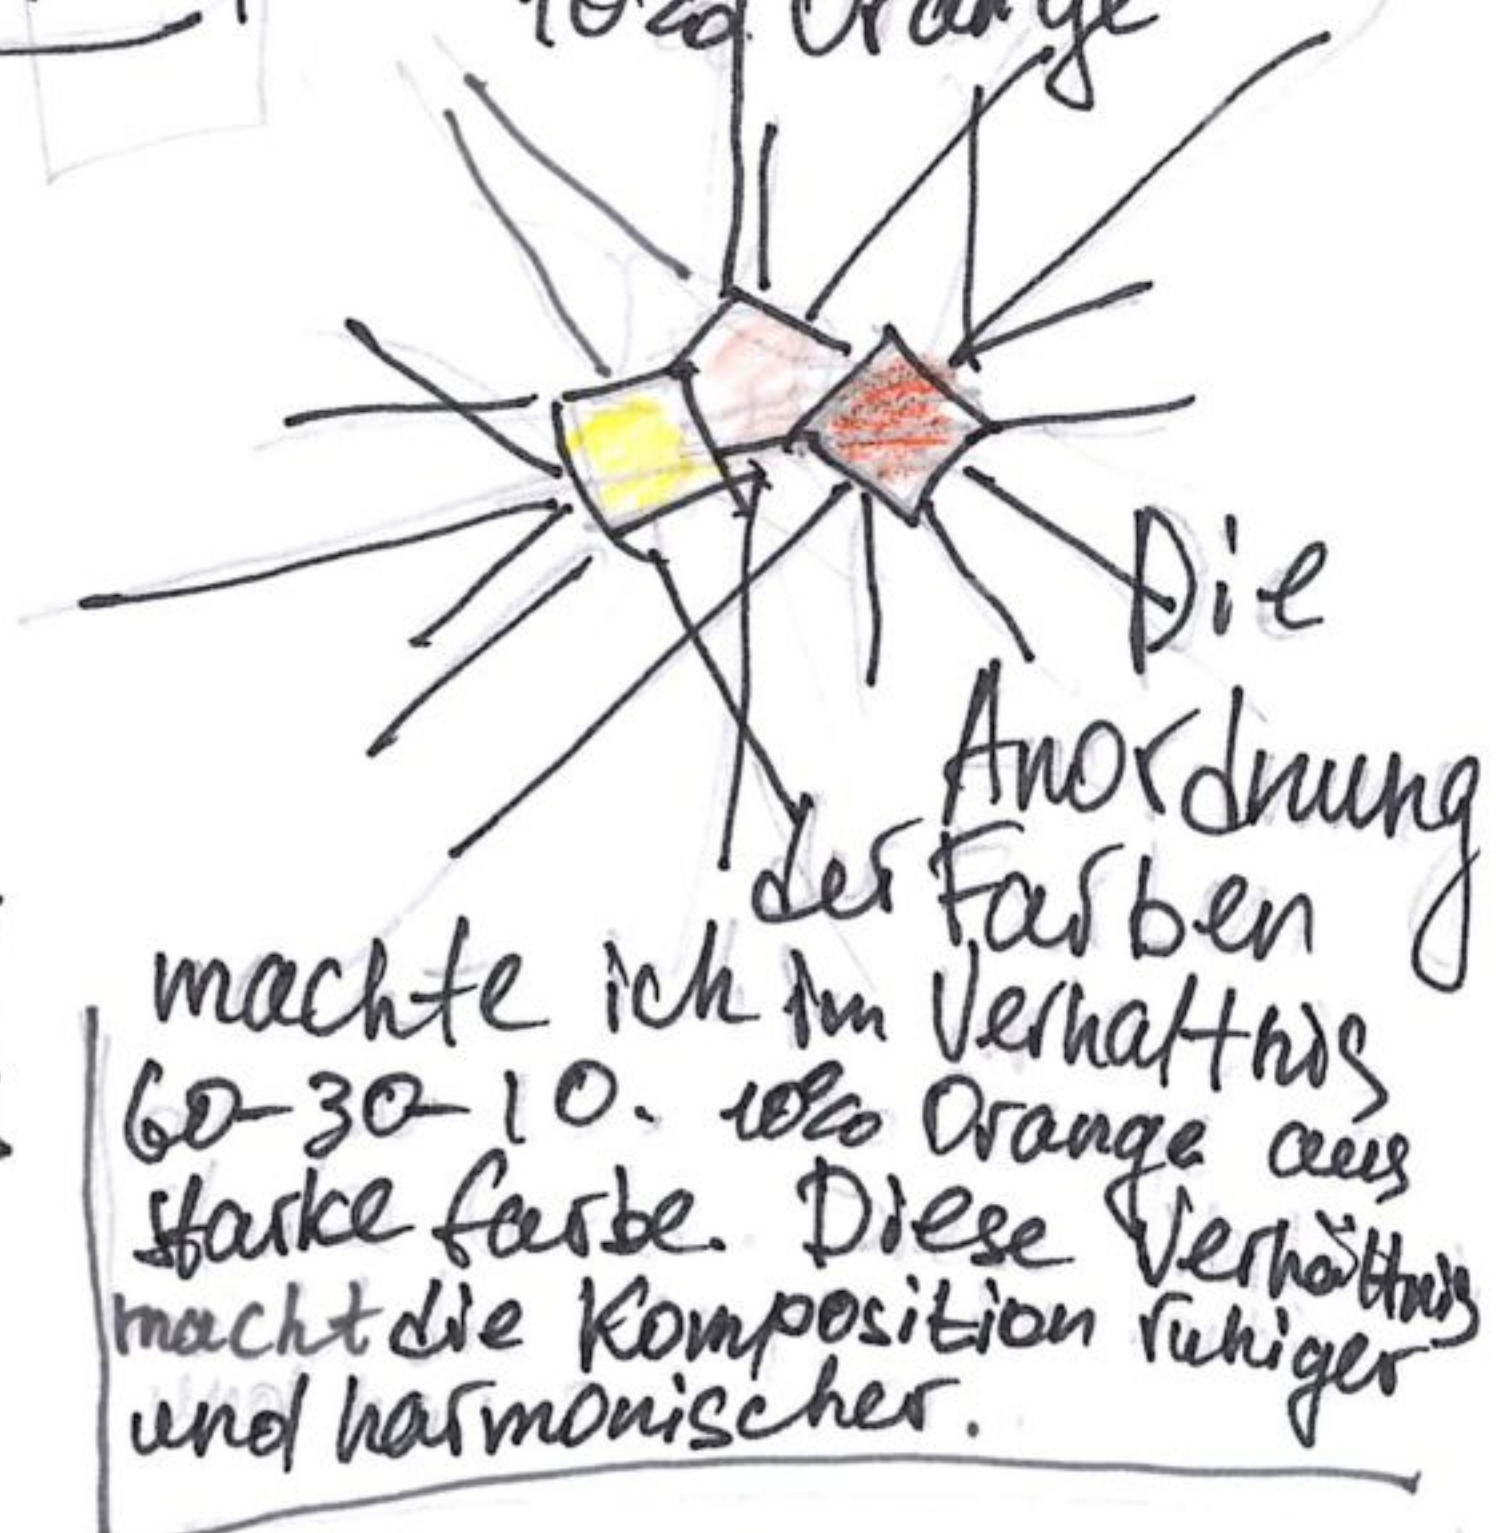 10% Orange
Die
Anordnung
der Farben
machte ich im Verhaltnis
60-30-10. 10% Orange aus
starke farbe. Diese Verhältnis
macht die Komposition ruhiger
und harmonischer.